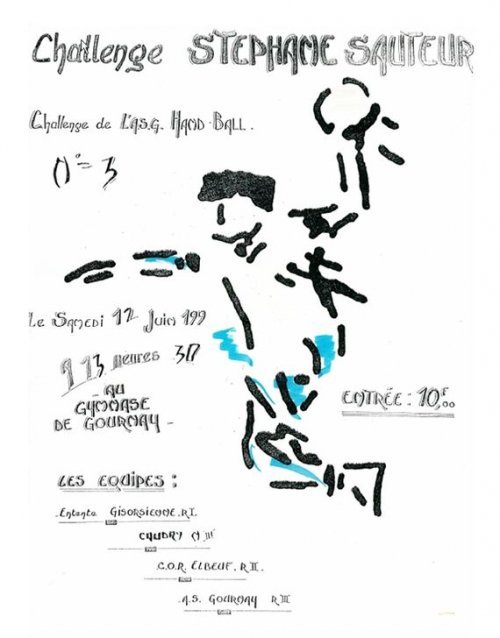 Challenge STEPHANE SAUTEUR
Challenge de L'A.S.G. HAND-BALL.
N°= 3
Le SAMEDI 12 JUIN 199
à 13 HEURES 30
- AU
GYMNASE
DE GOURNAY -
ENTRÉE : 10F,00
LES EQUIPES :
Entente GISORSIENNE. R.I.
CAUDRY N III
C.O.R. ELBEUF. R.II.
A.S. GOURNAY R III